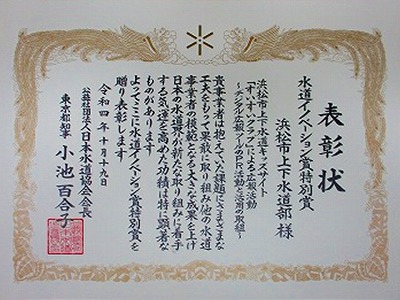 表彰状
水道イノベーション賞特別賞
浜松市上下水道部 様
浜松市上下水道キッズサイト
「すいすいクラブ」による広報活動
～デジタル広報ツールのPR活動と活用の取組～
貴事業者は抱えていた課題にさまざまな
工夫をもって果敢に取り組み他の水道
事業者の模範となる大きな成果を上げ
日本の水道界が新たな取り組みに着手
する気運を高めた功績は特に顕著な
ものがあります
よってここに水道イノベーション賞特別賞を
贈り表彰します
令和四年十月十九日
公益社団法人日本水道協会会長
東京都知事 小池百合子